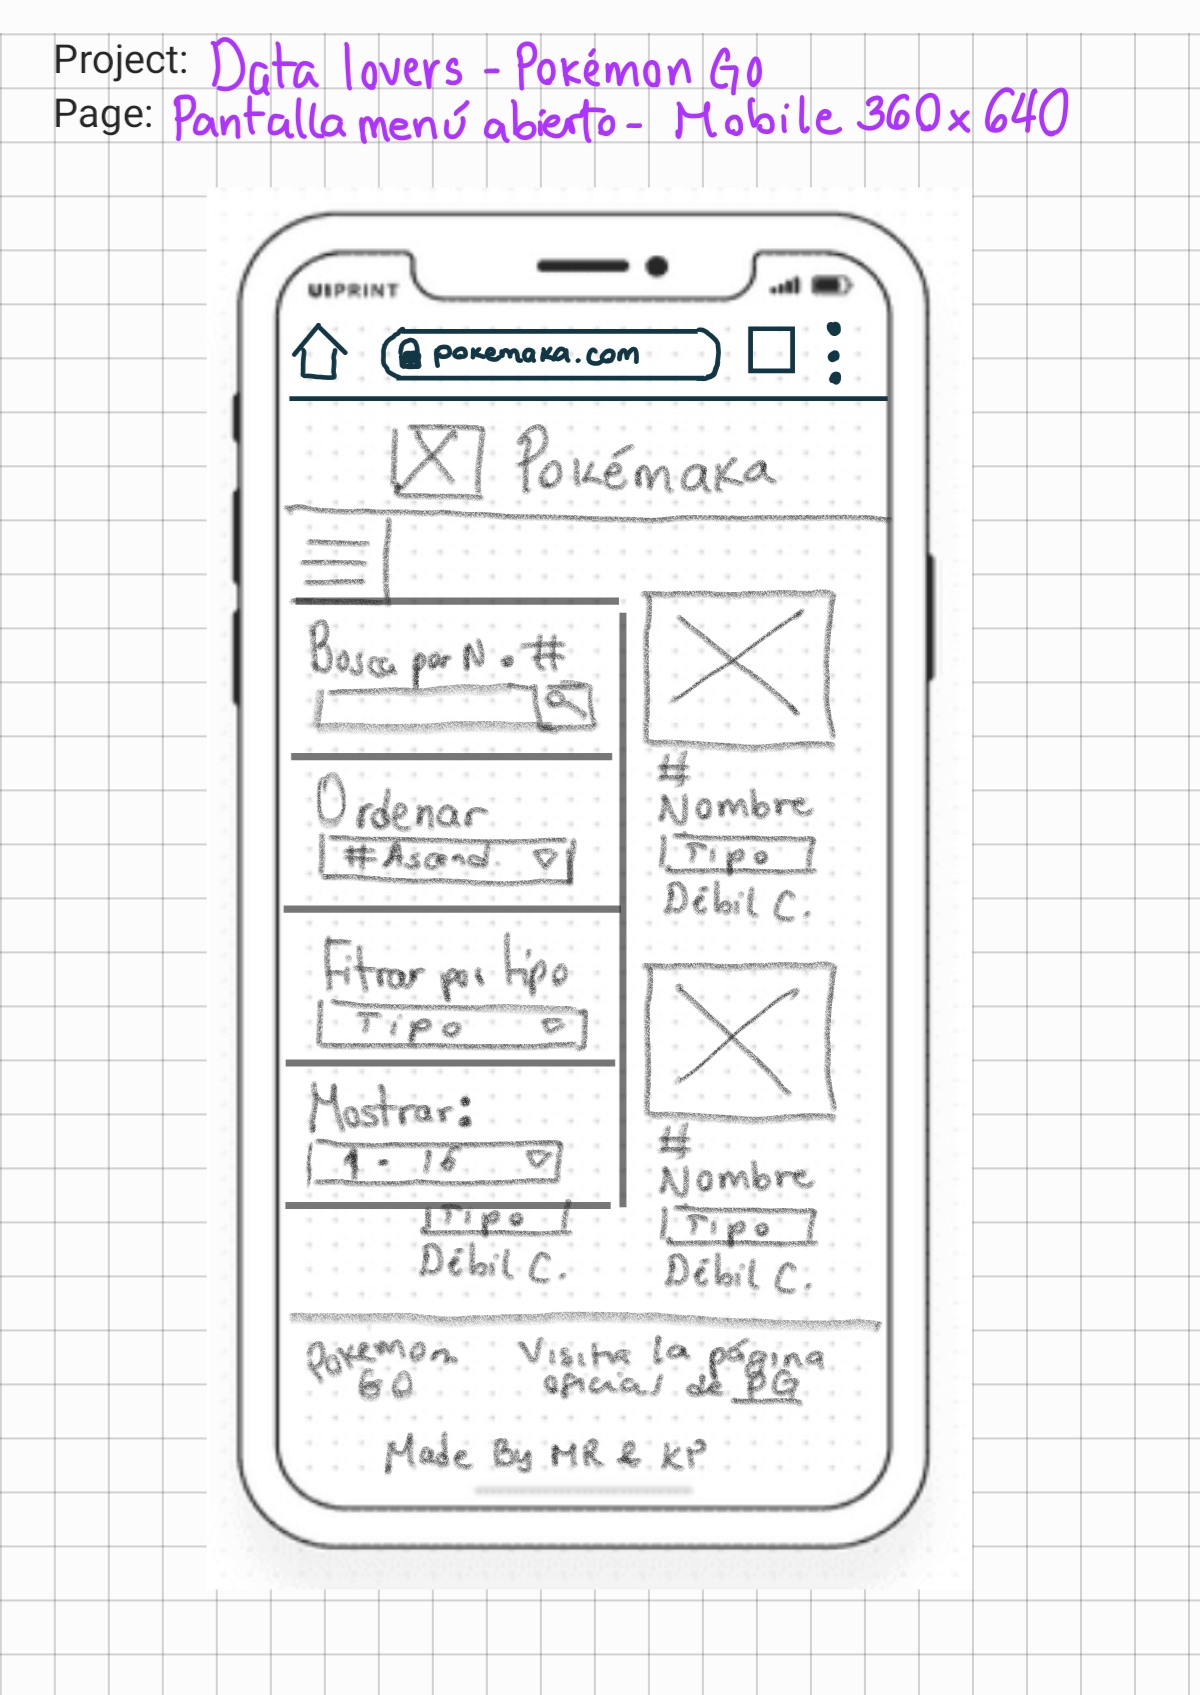 Project: Data lovers - Pokémon Go
Page: Pantalla menú abierto - Mobile 360x640
UIPRINT
pokemaka.com
Pokémaka
Busca por N. #
Ordenar
#Ascend.
Filtrar por tipo
Tipo
Mostrar:
1 - 16
Tipo
Débil C.
#
Nombre
Tipo
Débil C.
#
Nombre
Tipo
Débil C.
Pokemon
GO
Visita la página
oficial de PG
Made By MR & KP